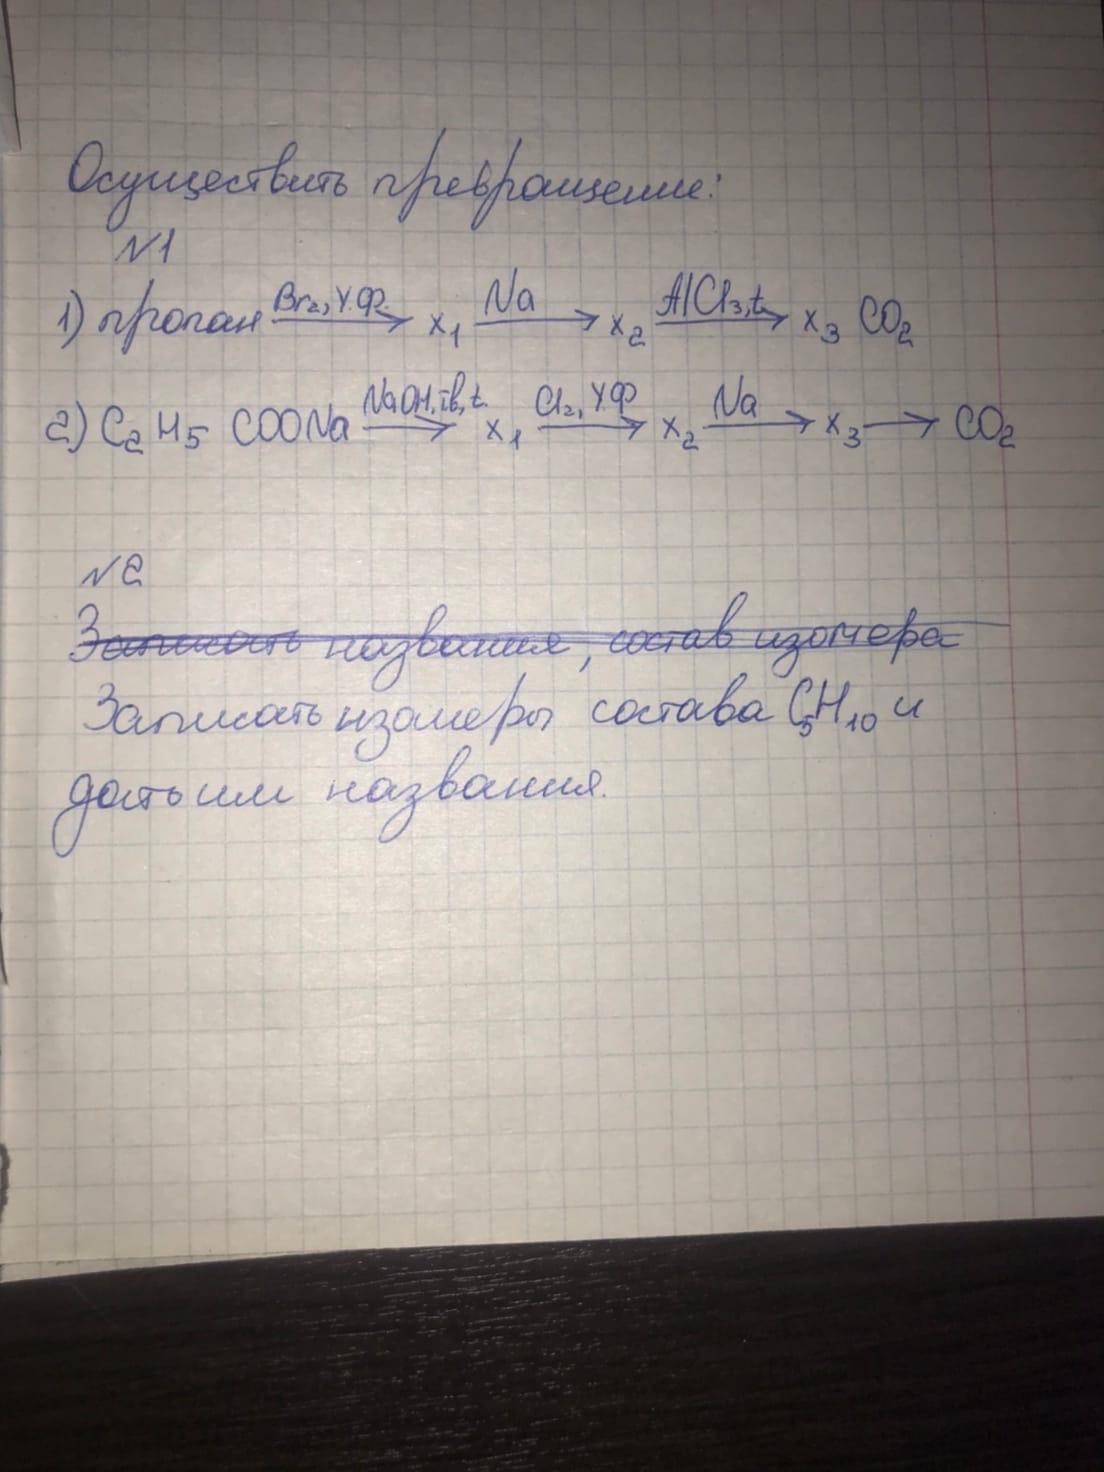 Осуществить превращение:
№1
1) пропан Br₂, У.Ф. → x₁ Na → x₂ AlCl₃, t → x₃ CO₂
2) C₂H₅COONa NaOH, тв, t. → x₁ Cl₂, У.Ф → x₂ Na → x₃ → CO₂
№2
Записать названия, состав изомера
Записать изомеры состава C₅H₁₀ и
дать им названия.